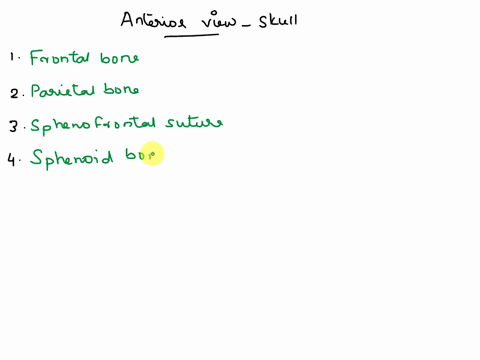 Anterior view - Skull
1. Frontal bone
2. Parietal bone
3. Sphenofrontal suture
4. Sphenoid bon